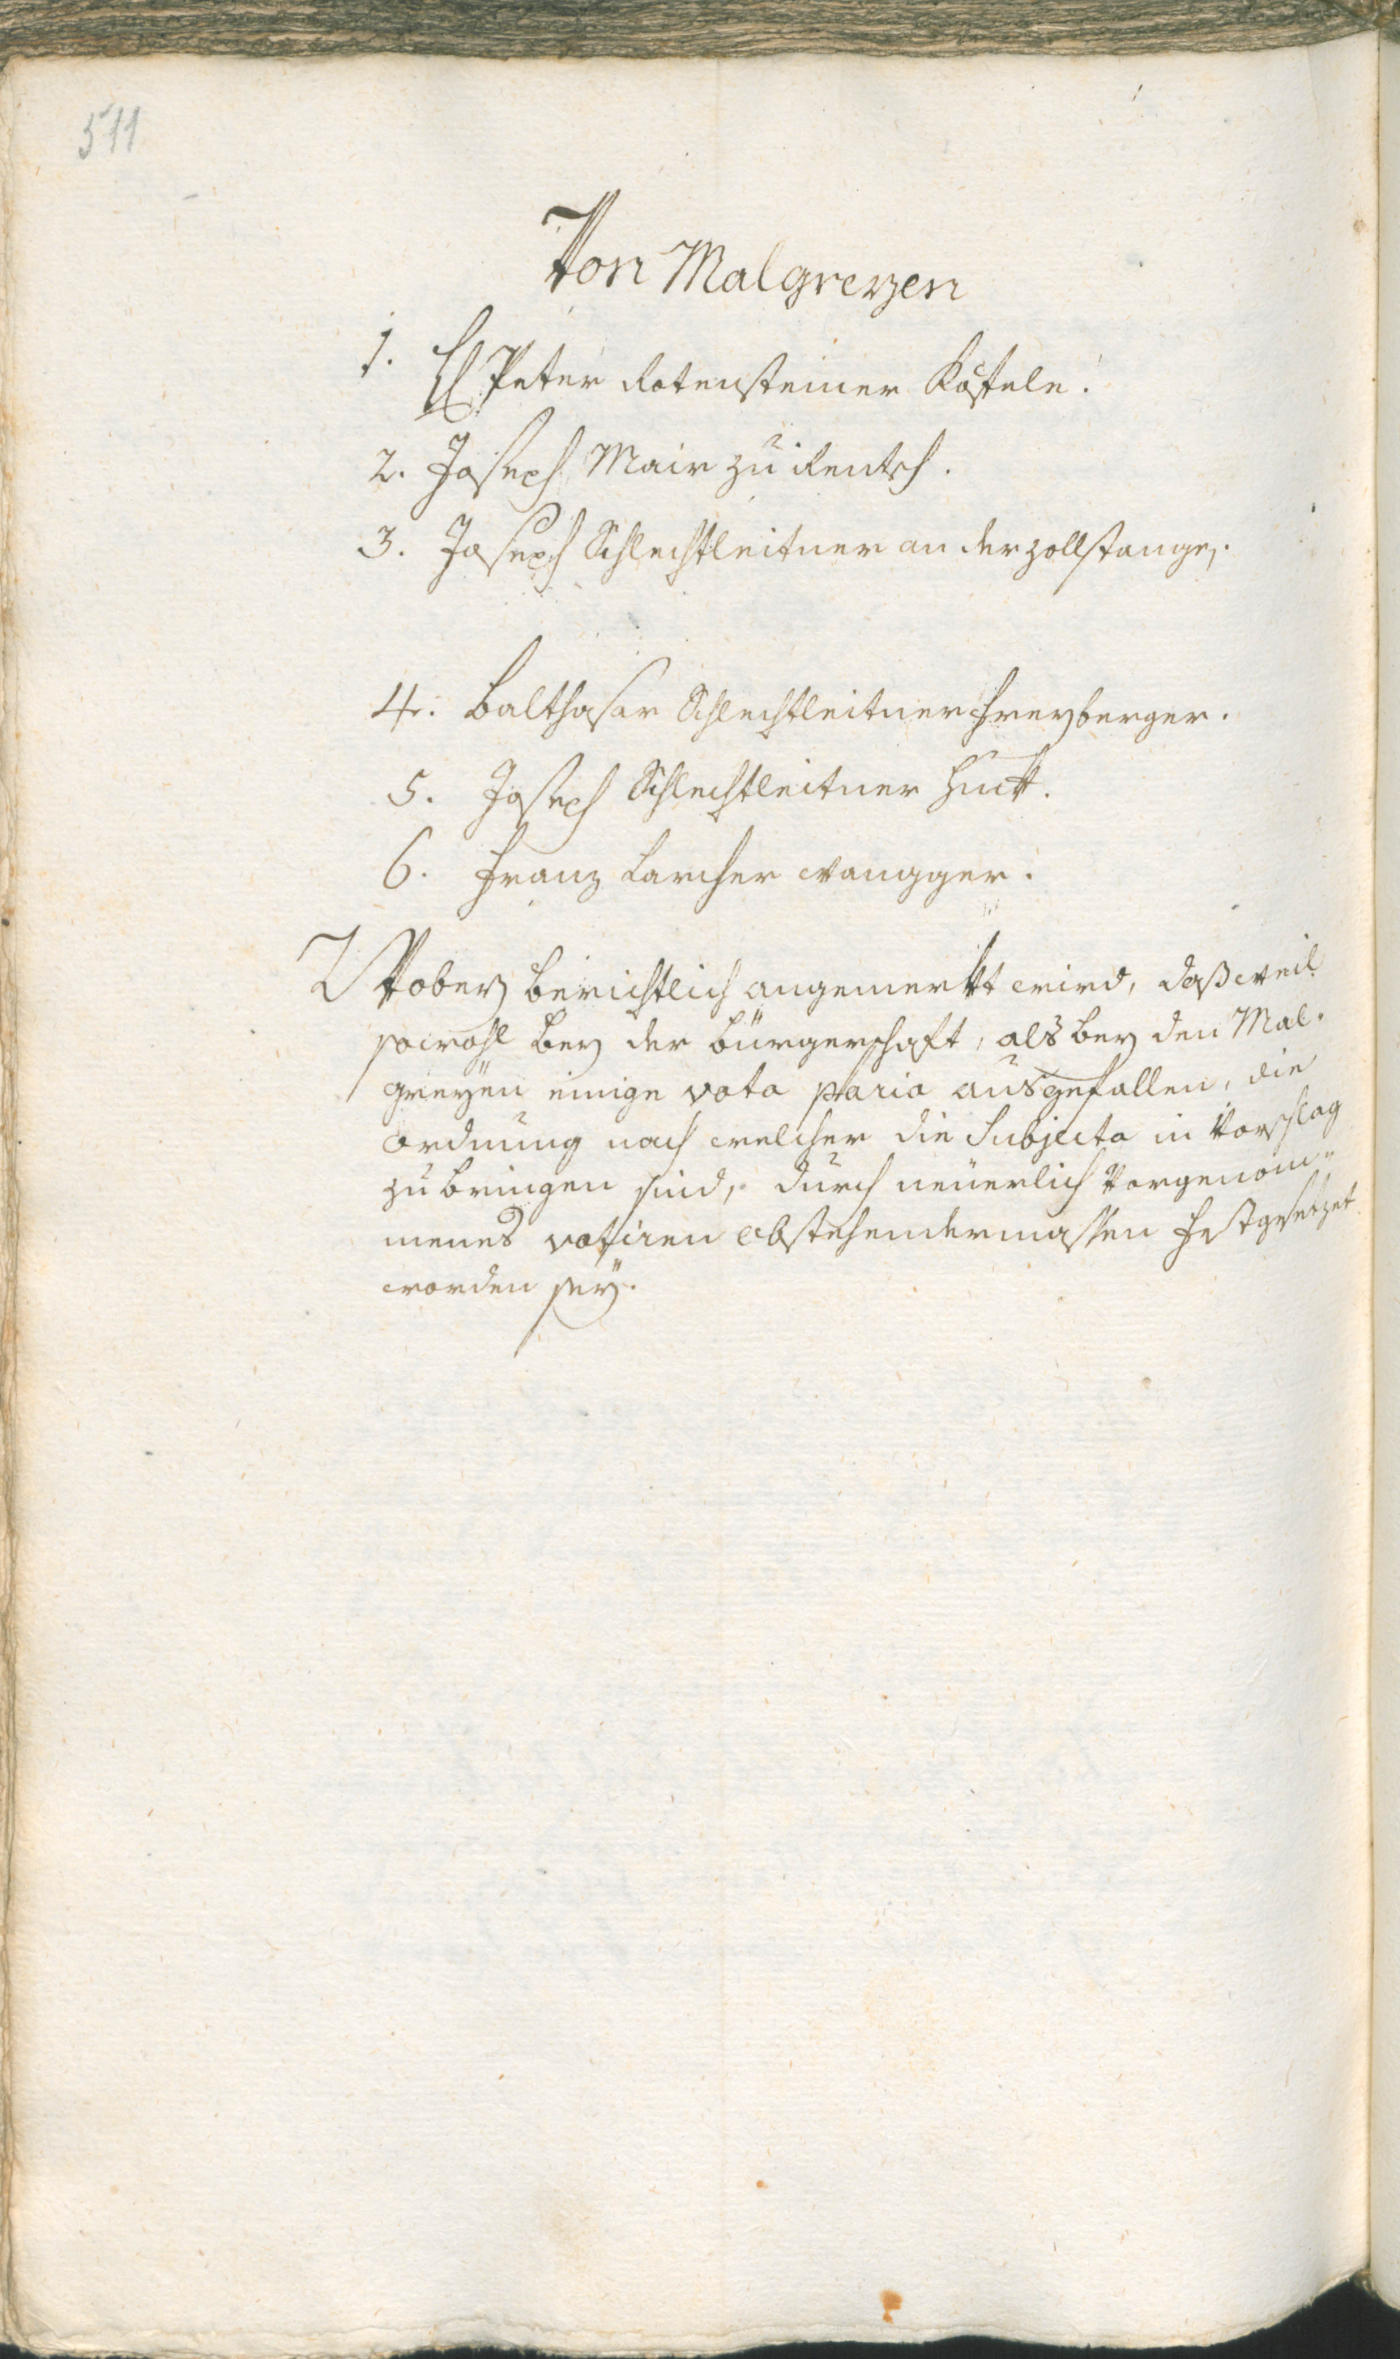 511
Von Malgreyen
1. H Peter Rotensteiner Köstele.
2. Joseph Mair zu Rentsch.
3. Joseph Schlechtleitner an der Zollstange,
4. Balthasar Schlechtleitner Freyberger.
5. Joseph Schlechtleitner Hutt.
6. Franz Larcher Wangger.
Wobey berichtlich angemerkt wird, daß weil
sowohl bey der Bürgerschaft, als bey den Mal-
greyen einige vota paria ausgefallen, die
Ordnung nach welcher die Subjecta in Vorschlag
zu bringen sind, durch neüerlich vorgenom-
menes votiren obstehendermassen festgesetzet
worden sey.